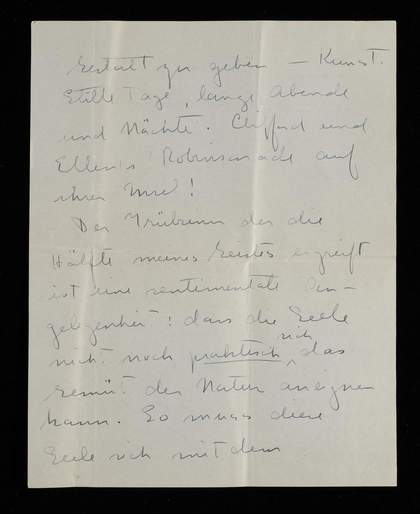 Gestalt zu geben – Kunst.
Stille Tage, lange Abende
und Nächte. Clifford und
Ellens Robinsonade auf
ihrer Insel!
Der Trübsinn der die
Hälfte meines Geistes ergreift
ist eine sentimentale An-
gelegenheit: dass die Seele
nicht noch praktisch sich das
Gemüt der Natur aneignen
kann. So muss diese
Seele sich mit dem